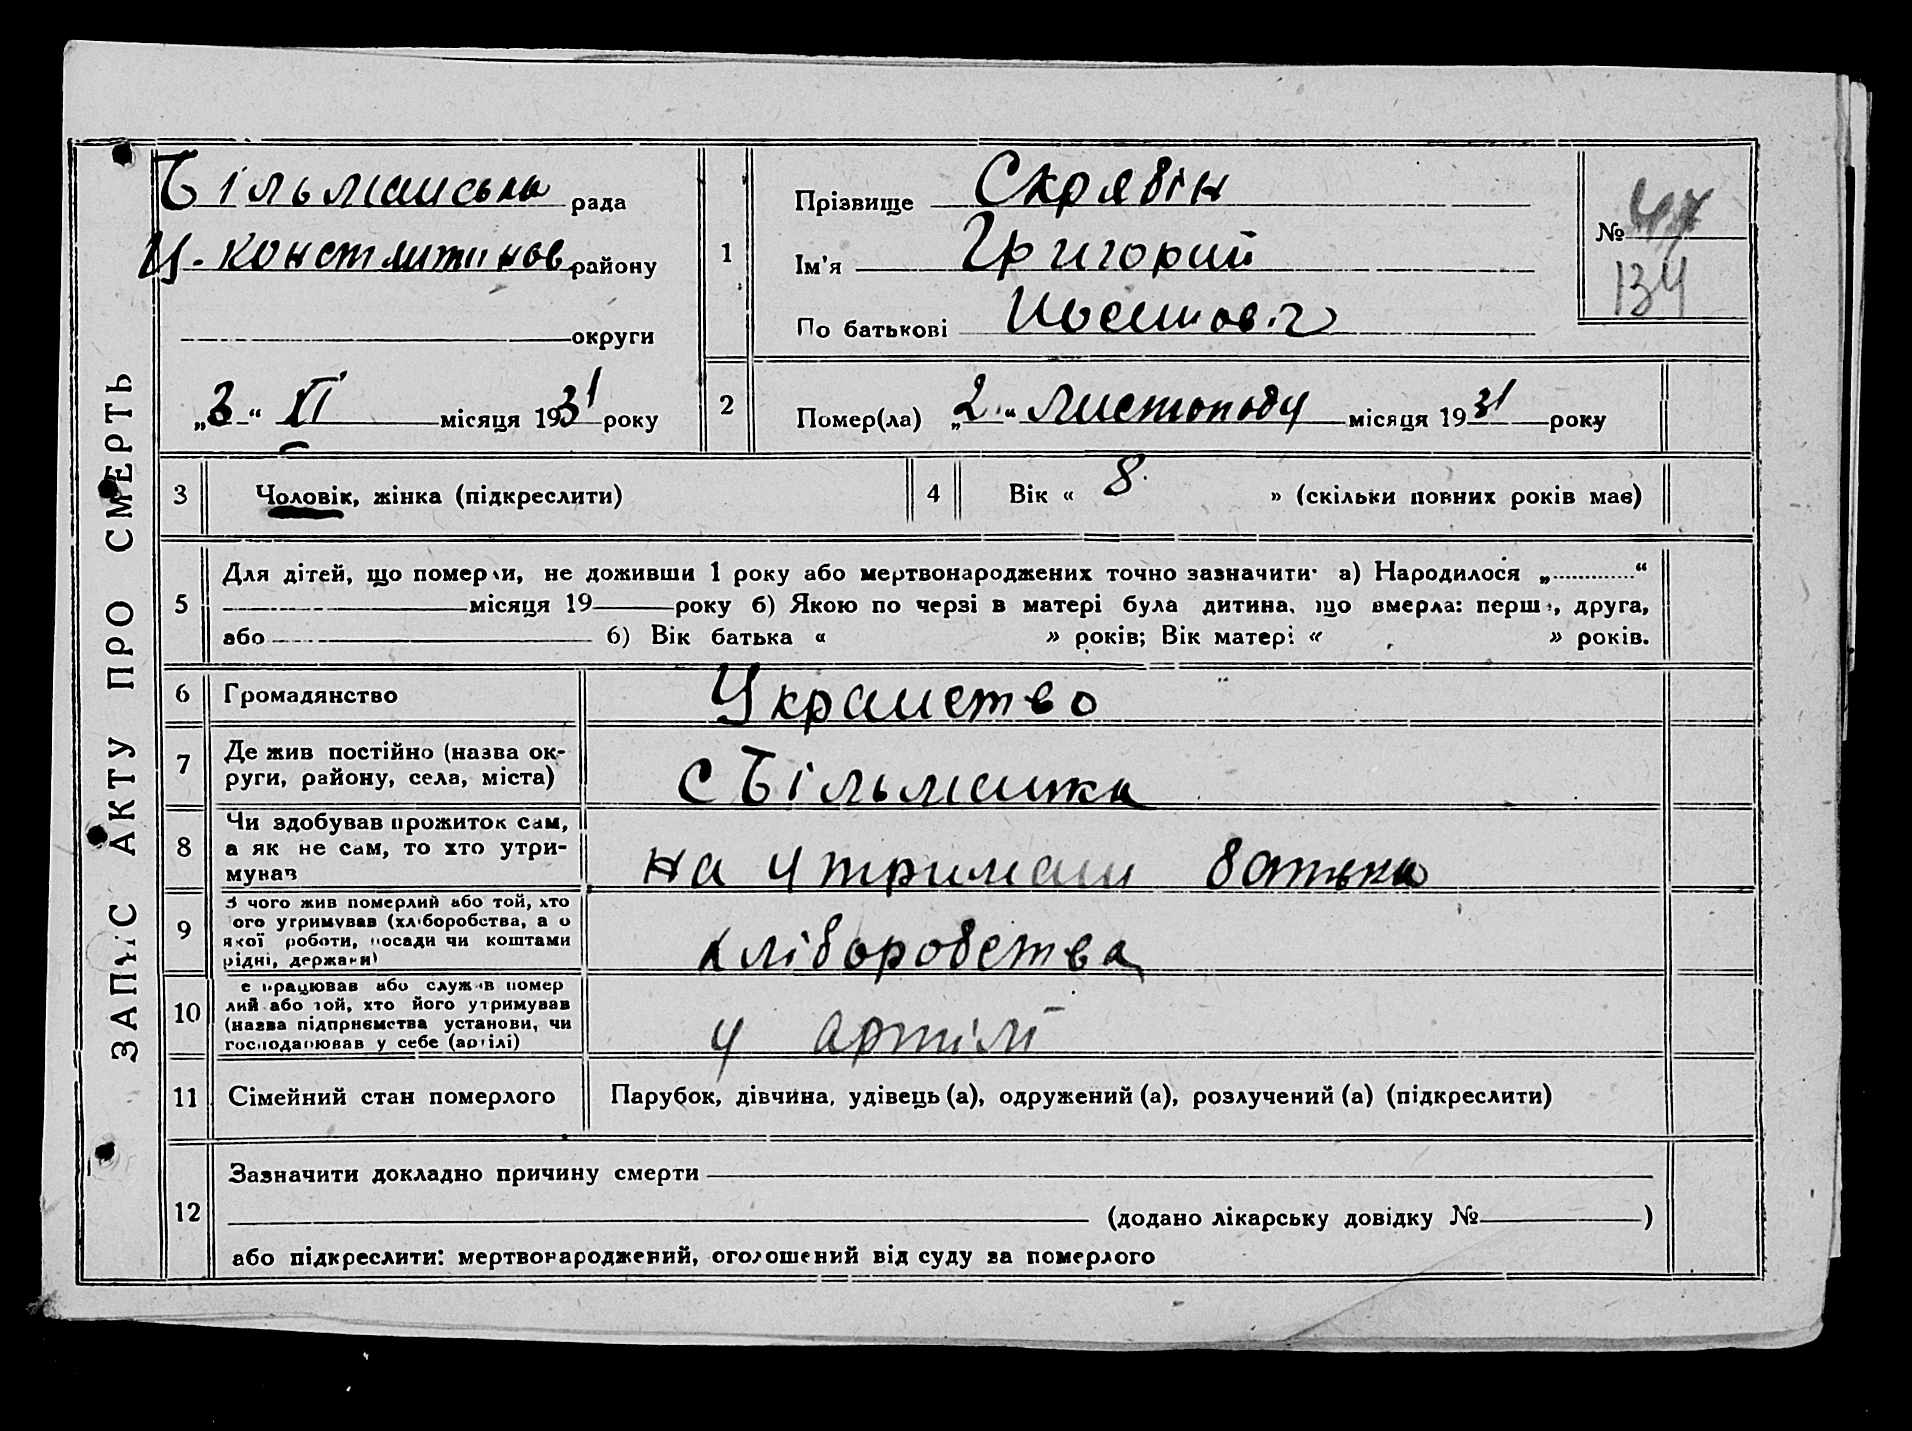 ЗАПИС АКТУ ПРО СМЕРТЬ
Більманська рада
Ц. Констянтинов району
округи
„3“ XI місяця 1931 року
1
Прізвище Скрябін
Ім’я Григорий
По батькові
№
134
2
Помер(ла) „2“ Листопаду місяця 1931 року
3 Чоловік, жінка (підкреслити)
4 Вік « 8 » (скільки повних років має)
5
Для дітей, що померли, не доживши 1 року або мертвонароджених точно зазначити: а) Народилося „ “
місяця 19 року б) Якою по черзі в матері була дитина, що вмерла: перша, друга,
або б) Вік батька « » років; Вік матері « » років.
6 Громадянство Украиство
7
Де жив постійно (назва ок-
руги, району, села, міста)
с Більманка
8
Чи здобував прожиток сам,
а як не сам, то хто утри-
мував
на утримані батька
9
З чого жив померлий або той, хто
ого утримував (хліборобства, а о
якої роботи, посади чи коштами
рідні, держави)
хліборобства
10
е працював або служив помер
лий або той, хто його утримував
(назва підприємства установи, чи
господарював у себе (артілі)
у артілі
11 Сімейний стан померлого
Парубок, дівчина, удівець (а), одружений (а), розлучений (а) (підкреслити)
12
Зазначити докладно причину смерти
(додано лікарську довідку № )
або підкреслити: мертвонароджений, оголошений від суду за померлого